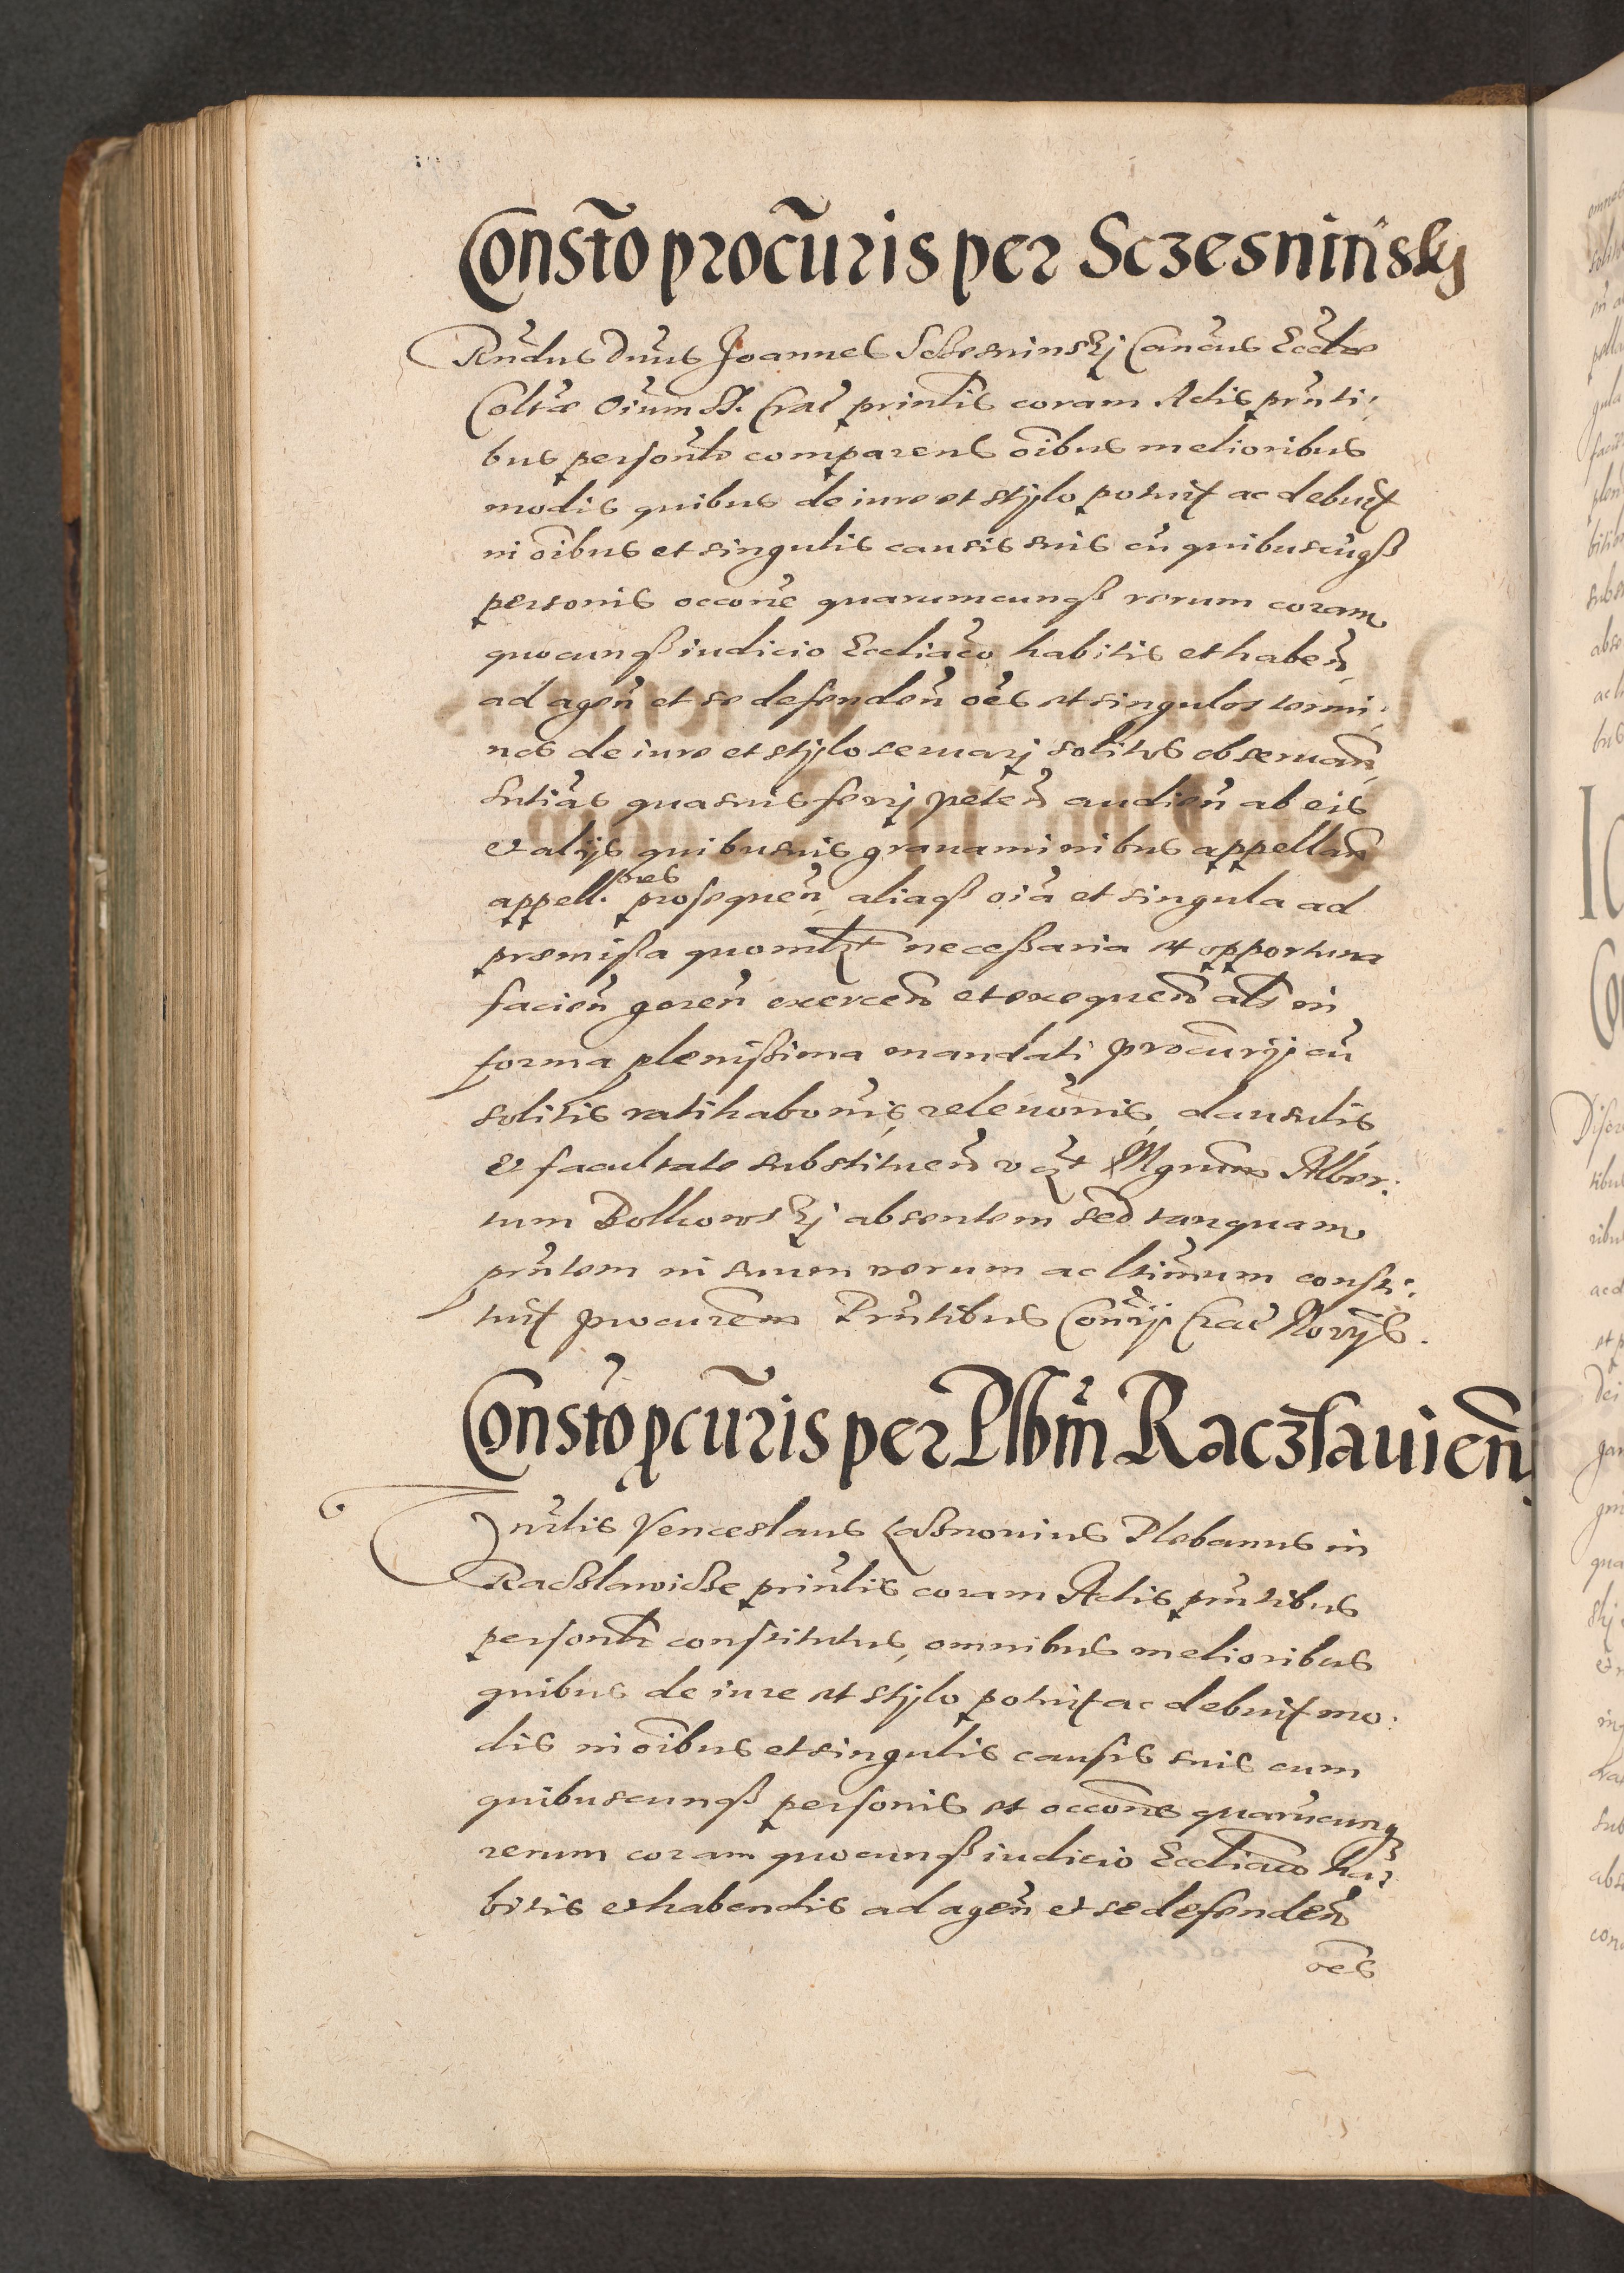 Consto procuris per Sczesninsky
Rndus Dnus Joannes Sczesninskj Cancus Eccliæ
Coltæ Oium SS. Crac prinlis coram Actis prnti:
bus personlr comparens oibus melioribus
modis quibus de iure et stylo potuit ac debuit
in oibus et singulis causis suis cu quibuscuqß
personis occone quarumcunqß rerum coram
quocunqß iudicio Eccliaco habitis et haben
ad agen et se defenden oes et singulos termi:
nos de iure et stylo seruarj solitos obseruan
sntias quasuis ferrj peten audien ab eis
et alijs quibusuis grauaminibus appellan
appell.ones prosequen aliaqß oia et singula ad
præmißa quomlzt neceßaria et opportuna
facien geren exercen et exequen als in
forma plenißima mandati procurij cu
solitis ratihabonis, releuonis, clausulis
et facultate substituen vqt Mgnum Alber:
tum Bolkowskj absentem sed tanquam
prntem in suum verum ac ltimum consti:
tuit procurem Prntibus Conrij Crac Norijs.
Consto pcuris per Plbm Raczlauien
Hnrlis Venceslaus Plebanus in
Raczlawicze prinlis coram Actis prntibus
personlr constitutus, omnibus melioribus
quibus de iure et stylo potuit ac debuit mo:
dis in oibus et singulis causis suis cum
quibuscunqß personis et occone quarucunq
rerum coram quocunqß iudicio Eccliaco ha:
bitis et habendis ad agen et se defenden
oes